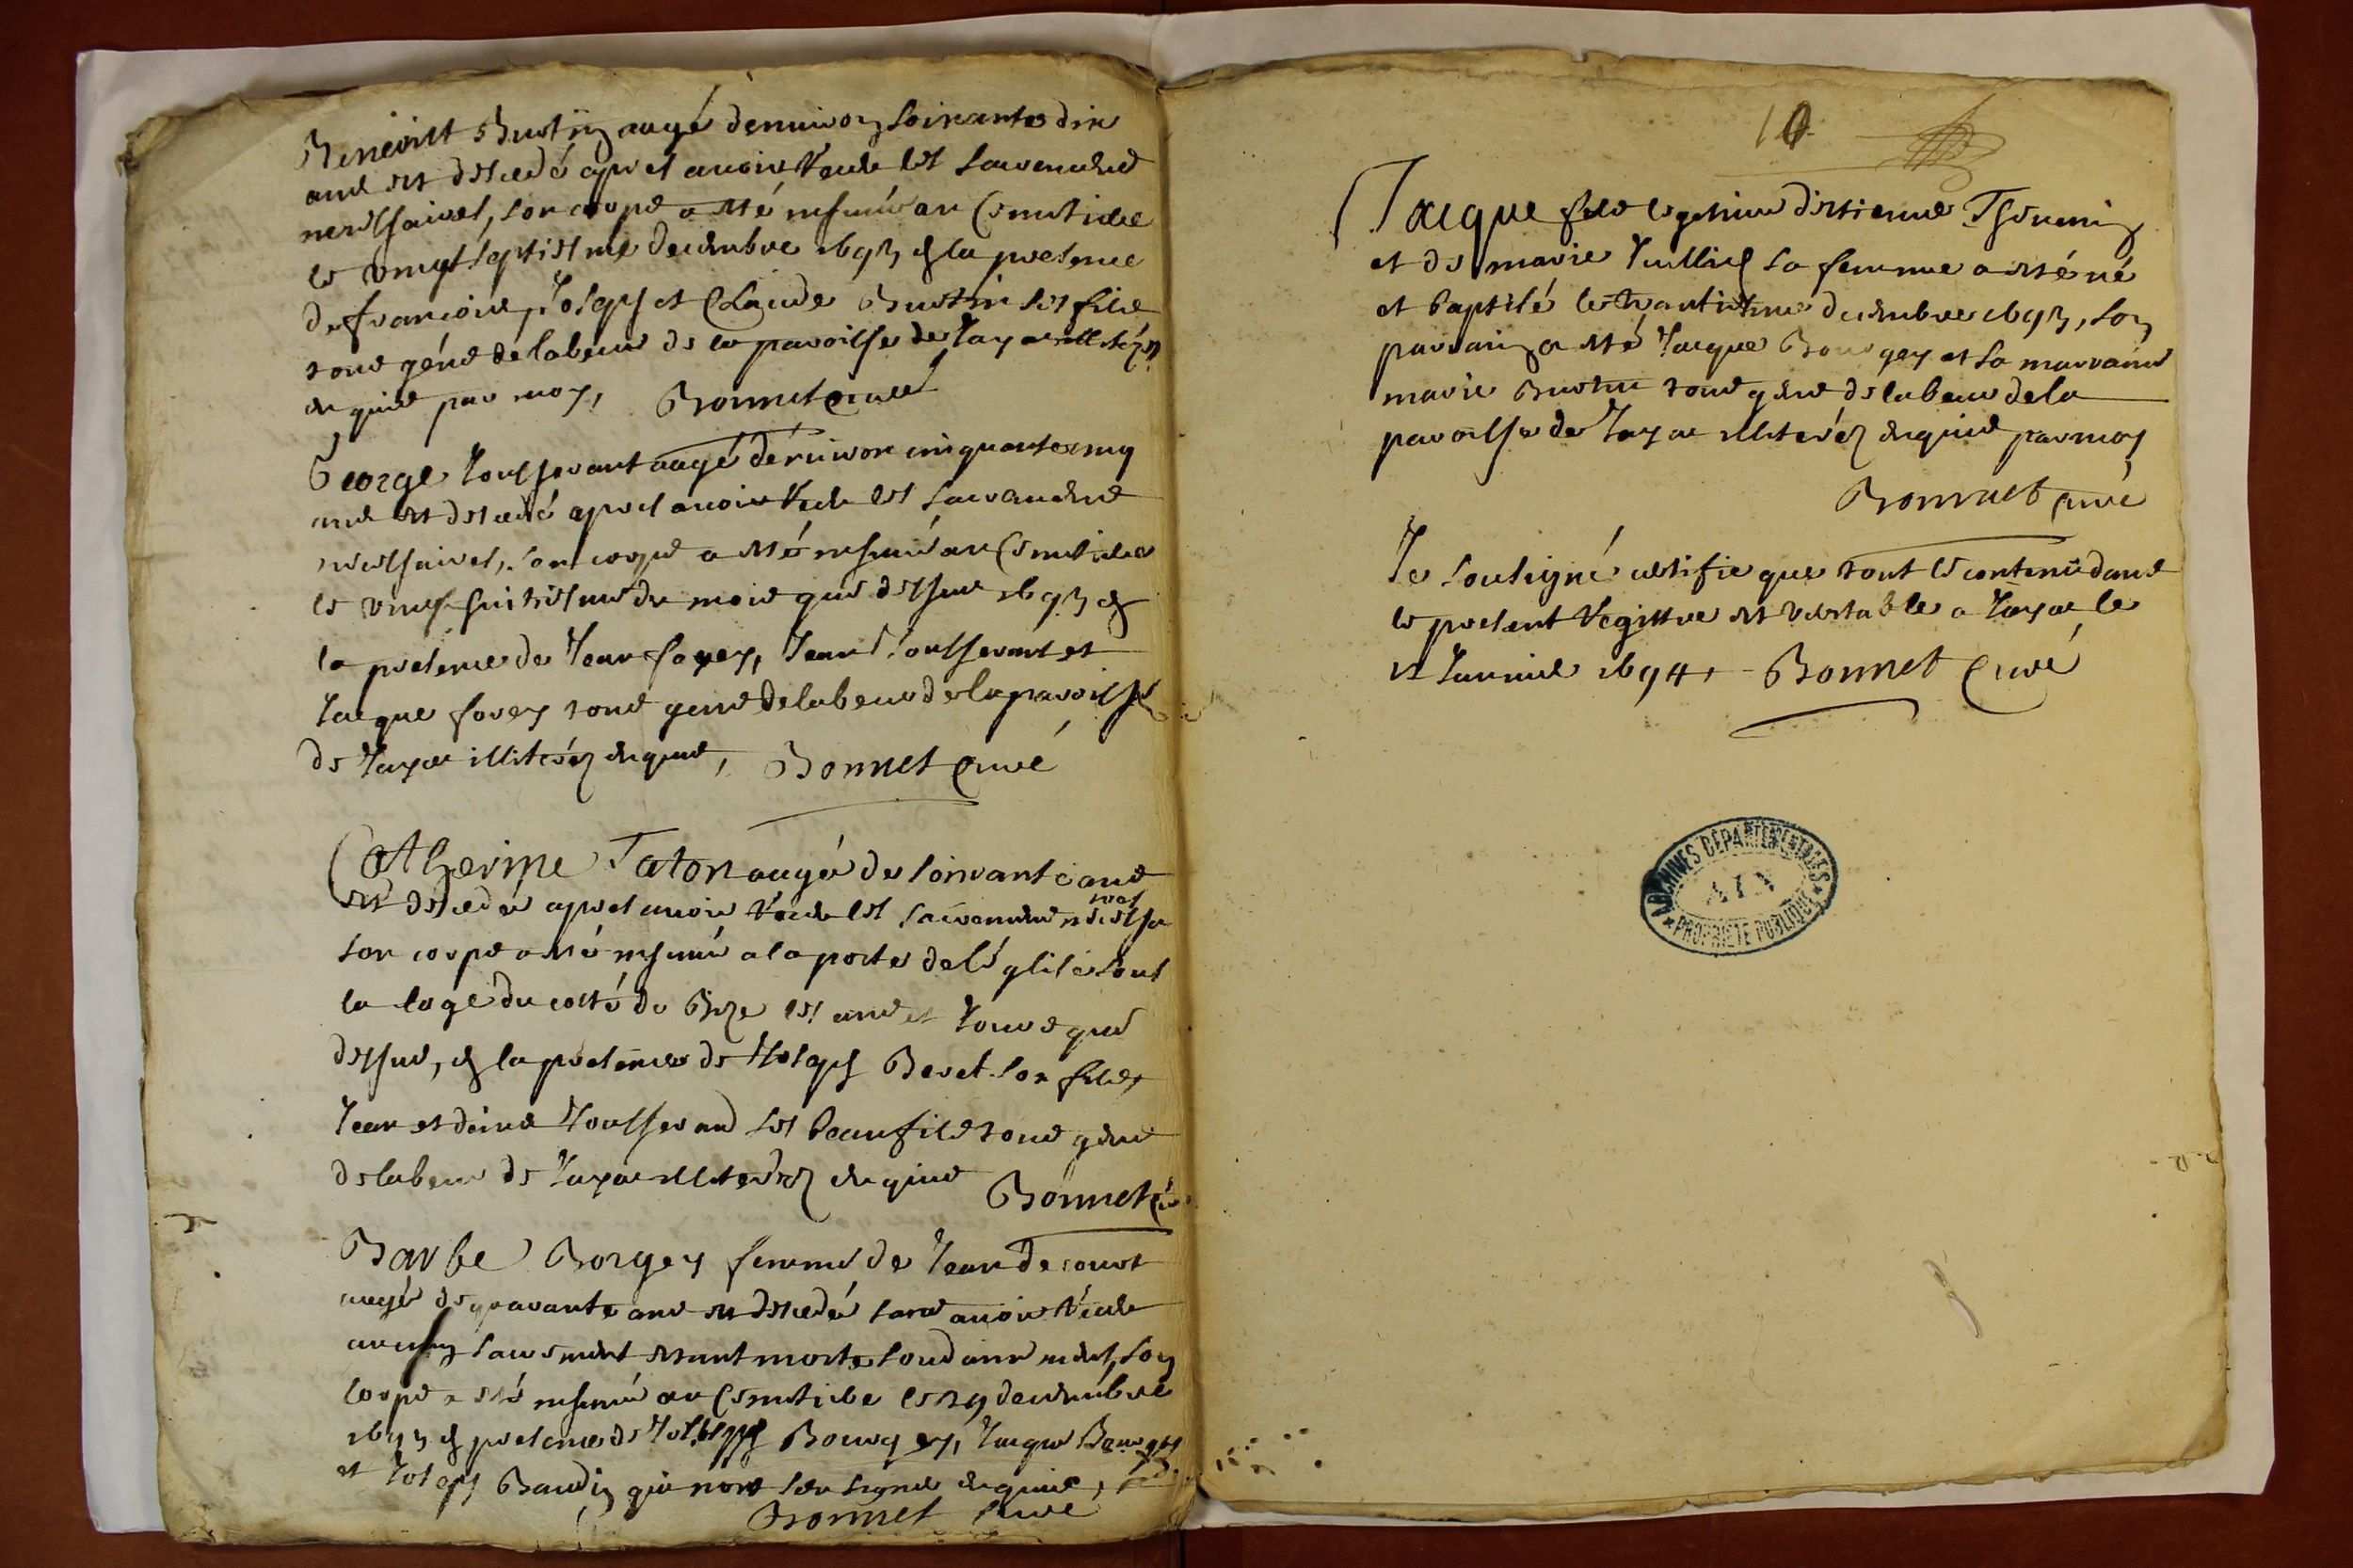 Benoist Bustin augé denuiron soixante dix
ans est décedé apres auoir receu les sacremens
necessaires, son corps a esté inhumé au Cemetiere
le vingt septiesme decembre 1693 en la presence
de françois, Joseph et Claude Bustin ses fils
tous gens de labeur de la paroisse de Jayac illiterez
enquis par moy, Bonnet curé
George Jousserant augé denuiron cinquante cinq
ans est decedé apres auoir receu les sacremens
necessaires, son corps a esté inhumé au Cemetiere
le vingt huitiesme du mois que dessus 1693 en
la presence de Jean forey, Jean Jousserant et
Jacque forey tous gens de labeur de la paroisse
de Jayac illiterez enquis, Bonnet Curé
Catherine Taton augée de soixante ans
est decedée apres auoir receu les sacremens necessa
res
son corps a esté inhumé a la porte de l'église sous
la loge du costé de Bize les ans et jours que
dessus, en la presence de Joseph Beret son fils,
Jean et Jousserand ses beaufils tous gens
de labeur de Jayac illiterez enquis Bonnet
Barbe Borgey femme de Jean
augée de quarante ans est decedé sans auoir receu
aucun sacrement estant morte soudainement, son
corps a esté inhumé au Cemetiere le 29 decembre
1693 en presence de Joseph Bourgey, Jacque Bourgey
et Joseph Baudin qui nont sceu signer enquis,
Bonnet Curé
10
Jacque fils legitime d'estienne Theuenin
et de marie Jullin sa femme a esté né
et baptisé le trantiesme decembre 1693, son
parrain a esté Jacque Bourgey et sa marraine
marie Bustin tous gens de labeur de la
paroisse de Jayac illiterez enquis par moy
Bonnet curé
Je soussigné certifie que tout le contenu dans
le present Registre est veritable a Jayac le
Januier 1694 Bonnet Curé
ARCHIVES DÉPARTEMENTALES
AIN
PROPRIÉTÉ PUBLIQUE